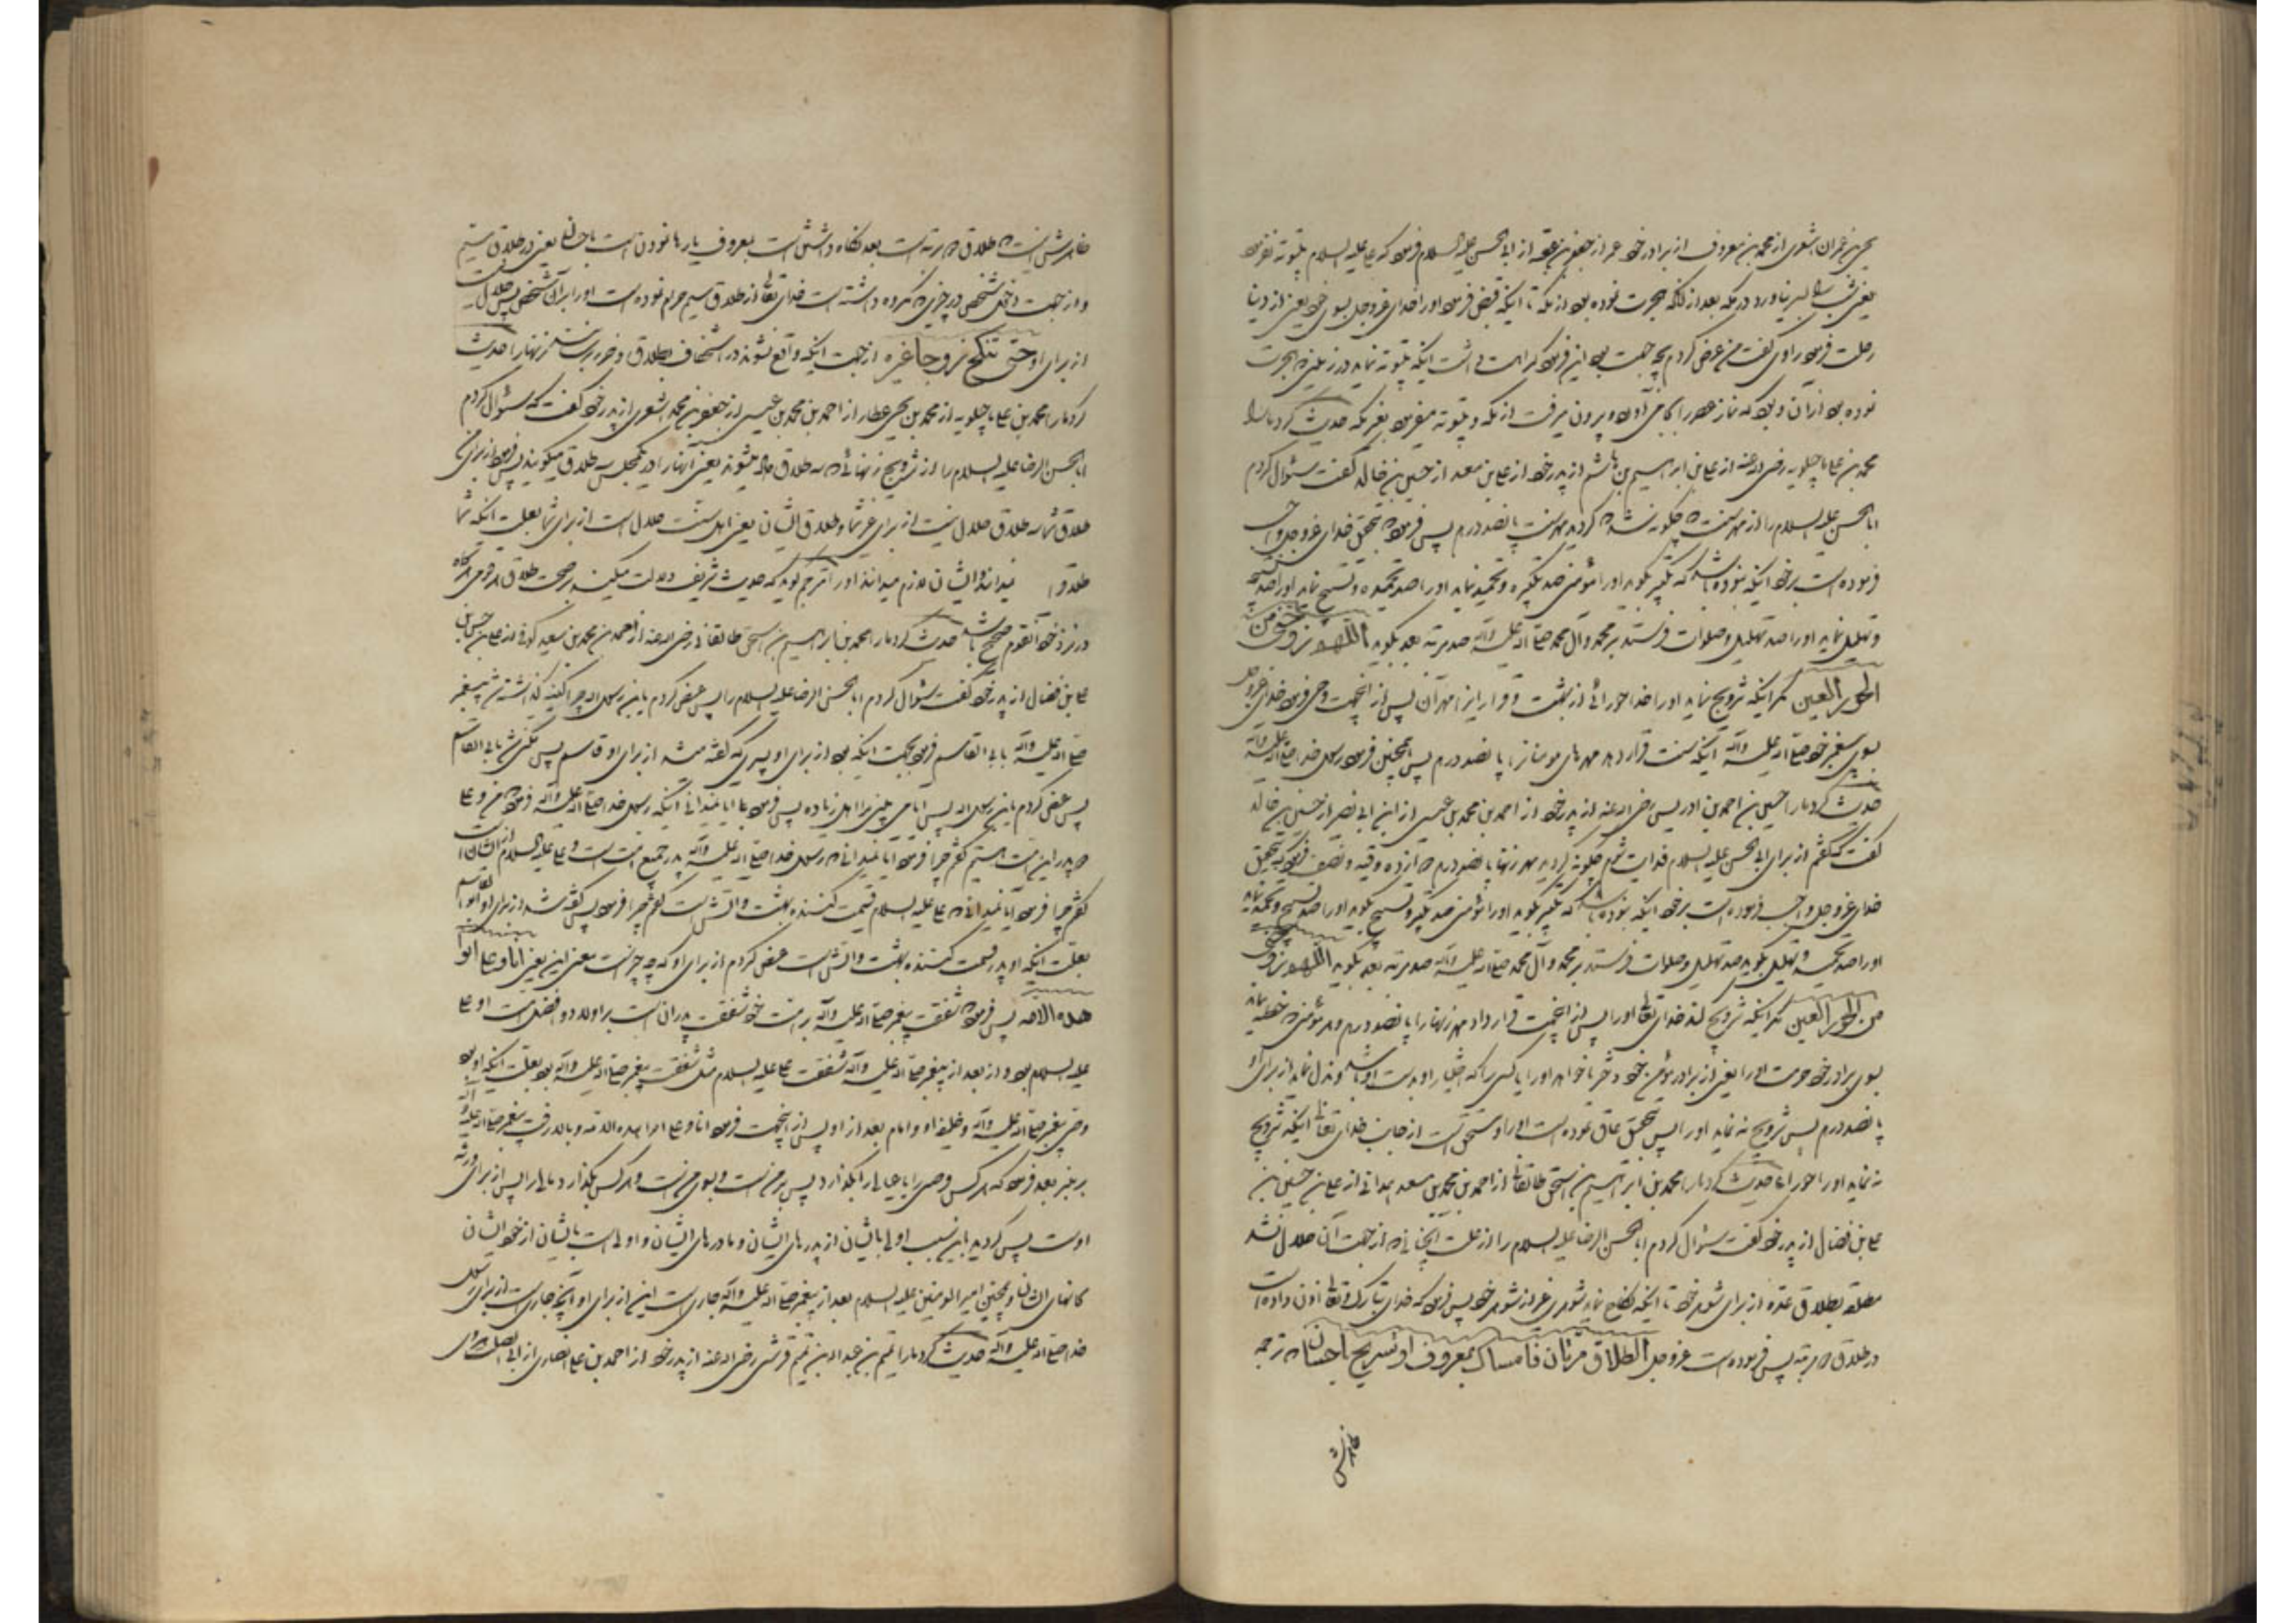 یحیی بن عمران اشعری از محمد بن معروف از برادر خود عمر از جعفر بن عقبه از ابی الحسن علیه السلام فرمود که علی علیه السلام بیتوته نفرمود
یعنی شب را بسر نیاورد در مکه بعد از آنکه هجرت نموده بود از مکه تا اینکه قبض فرمود او را خدای عزوجل بسوی خود یعنی از دنیا
رحلت فرمود راوی گفت من عرض کردم بچه جهت بود این فرمود کراهت داشت اینکه بیتوته نماید در زمینی که هجرت
نموده بود از آن و بود که نماز عصر را بجا می آورد و بیرون میرفت از مکه و بیتوته میفرمود بغیر مکه حدیث کرد ما را
محمد بن علی ماجیلویه رضی الله عنه از علی بن ابراهیم بن هاشم از پدر خود از علی بن معبد از حسین بن خالد گفت سئوال کردم
ابا الحسن علیه السلام را از مهر سنت که چگونه شد که گردید مهر سنت پانصد درم پس فرمود که بتحقیق خدای عزوجل واجب
فرموده است بر خود اینکه نبوده باشد که تکبیر بگوید او را مؤمنی صد تکبیر و تحمید نماید او را صد تحمید و تسبیح نماید او را صد تسبیح
و تهلیل نماید او را صد تهلیل و صلوات فرستد بر محمد و آل محمد صلی الله علیه و آله صد مرتبه بعد بگوید اللهم زوجنی من
الحور العین مگر اینکه تزویج نماید او را خدا حورائی از بهشت و قرار این را مهر آن پس از اینجهت وحی فرمود خدای عزوجل
بسوی پیغمبر خود صلی الله علیه و آله اینکه سنت قرار دهد مهرهای مومنان را پانصد درم پس همچنین فرمود رسول خدا صلی الله علیه و آله
حدیث کرد ما را حسین بن احمد بن ادریس رضی الله عنه از پدر خود از احمد بن محمد بن عیسی از ابن ابی نصر از حسین بن خالد
گفت که گفتم از برای ابی الحسن علیه السلام فدایت شوم چگونه گردید مهر زنها پانصد درم دوازده وقیه و نصف فرمود که بتحقیق
خدای عزوجل واجب فرموده است بر خود اینکه نبوده باشد که تکبیر بگوید او را مؤمنی صد تکبیر و تسبیح بگوید او را صد تسبیح و تحمید نماید
او را صد تحمید و تهلیل بگوید صد تهلیل و صلوات فرستد بر محمد و آل محمد صلی الله علیه و آله صد مرتبه بعد بگوید اللهم زوجنی
من الحور العین مگر اینکه تزویج کند خدای تعالی او را پس از اینجهت قرار داد مهر زنها را پانصد درم و هر مؤمنی که خطبه نماید
بسوی برادر خود حرمت او را یعنی از برادر مؤمن خود دختر یا خواهر او را یا کسی را که اختیار او بدست او باشد و بذل نماید از برای او
پانصد درم پس تزویج نه نماید او را پس بتحقیق عاق نموده است او را و مستحق است از جانب خدای تعالی اینکه تزویج
نه نماید او را حورا حدیث کرد ما را محمد بن ابراهیم بن اسحق طالقانی از احمد بن محمد بن سعید همدانی از علی بن حسین بن
علی بن فضال از پدر خود گفت سئوال کردم ابا الحسن الرضا علیه السلام را از علت آنچنانی که از جهت آن حلال نشد
مطلقه بطلاق عده از برای شوهر خود تا اینکه نکاح نماید شوهری غیر از شوهر خود پس فرمود که خدای تبارک و تعالی اذن داده است
در طلاق دو مرتبه پس فرموده است عزوجل الطلاق مرتان فامساک بمعروف او تسریح باحسان که ترجمه
ظاهرش
ظاهرش اینست که طلاق دو مرتبه است بعد نگاه داشتن است بمعروف یا رها نمودن است باحسان یعنی در طلاق سیم
و از جهت داخل شدن شخص در چیزی که مکروه داشته است خدای تعالی از طلاق سیم حرام نموده است او را بر آن شخص پس حلال نیست
از برای او حتی تنکح زوجا غیره از جهت اینکه واقع نشوند در استخفاف بطلاق و ضرر نرسانند زنها را حدیث
کرد ما را محمد بن علی ماجیلویه از محمد بن یحیی عطار از احمد بن محمد بن عیسی از جعفر بن محمد اشعری از پدر خود گفت که سئوال کردم
ابا الحسن الرضا علیه السلام را از تزویج زنهائی که سه طلاق داده میشوند یعنی آنها را در یکمجلس سه طلاق میگویند پس فرمود از برای من
طلاق شما سه طلاق حلال نیست از برای غیر شما و طلاق ایشان یعنی اهل سنت حلال است از برای شما بعلت اینکه شما
طلاق را نمیدانید و ایشان لازم میدانند او را مترجم گوید که حدیث شریف دلالت میکند بر صحت طلاق هر قومی هرگاه
در نزد خود آنقوم صحیح باشد حدیث کرد ما را محمد بن ابراهیم بن اسحق طالقانی رضی الله عنه از احمد بن محمد بن سعید کوفی از علی بن حسن بن
علی بن فضال از پدر خود گفت سئوال کردم ابا الحسن الرضا علیه السلام را پس عرض کردم یابن رسول الله چرا کنیه گذاشته شد پیغمبر
صلی الله علیه و آله بابی القاسم فرمود بجهت اینکه بود از برای او پسری که گفته میشد از برای او قاسم پس مکنی شد بابی القاسم
پس عرض کردم یابن رسول الله پس آیا می بینی مرا اهل زیاده پس فرمود بلی آیا نمیدانی اینکه رسول خدا صلی الله علیه و آله فرمود من و علی
دو پدر این امت هستیم گفتم چرا فرمود آیا نمیدانی که رسول خدا صلی الله علیه و آله پدر جمیع امت است و علی علیه السلام از ایشان است
گفتم چرا فرمود آیا نمیدانی که علی علیه السلام قسمت کننده بهشت و آتش است گفتم چرا فرمود پس گفته شد از برای او ابوالقاسم
بعلت اینکه او پدر قسمت کننده بهشت و آتش است عرض کردم از برای او که چه چیز است معنی این یعنی انا و علی ابوا
هذه الامه پس فرمود که شفقت پیغمبر صلی الله علیه و آله بر امت خود شفقت پدران است بر اولاد و افضل است او علی
علیه السلام بود و از بعد از پیغمبر صلی الله علیه و آله شفقت علی علیه السلام مثل شفقت پیغمبر صلی الله علیه و آله بود بعلت اینکه او بود
وصی پیغمبر صلی الله علیه و آله و خلیفه او و امام بعد از او پس از اینجهت فرمود انا و علی ابوا هذه الامه و بالا رفت پیغمبر صلی الله علیه و آله
بر منبر بعد فرمود که هر کس قرضی را یا عیالی را بگذارد پس بر من است و بسوی من است و هر کس بگذارد مالی را پس از برای ورثه
اوست پس گردید باین سبب اولی بایشان از پدرهای ایشان و مادرهای ایشان و اولی است بایشان از خود ایشان
و همچنین امیر المومنین علیه السلام بعد از پیغمبر صلی الله علیه و آله جاری است این از برای او آنچه جاری است از برای رسول
خدا صلی الله علیه و آله حدیث کرد ما را تمیم بن عبد الله بن تمیم قرشی رضی الله عنه از پدر خود از احمد بن علی انصاری از ابی الصلت هروی